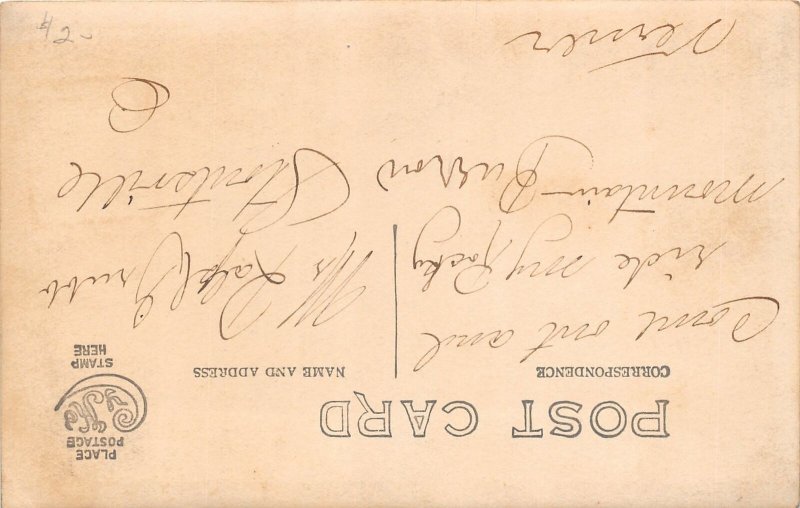 POST CARD
CORRESPONDENCE
NAME AND ADDRESS
PLACE
POSTAGE
CYKO
STAMP
HERE
Come out and
ride my Rocky
mountain Burrow
Verner
Mr Ralph Grubb
Stoutsville
O
42-